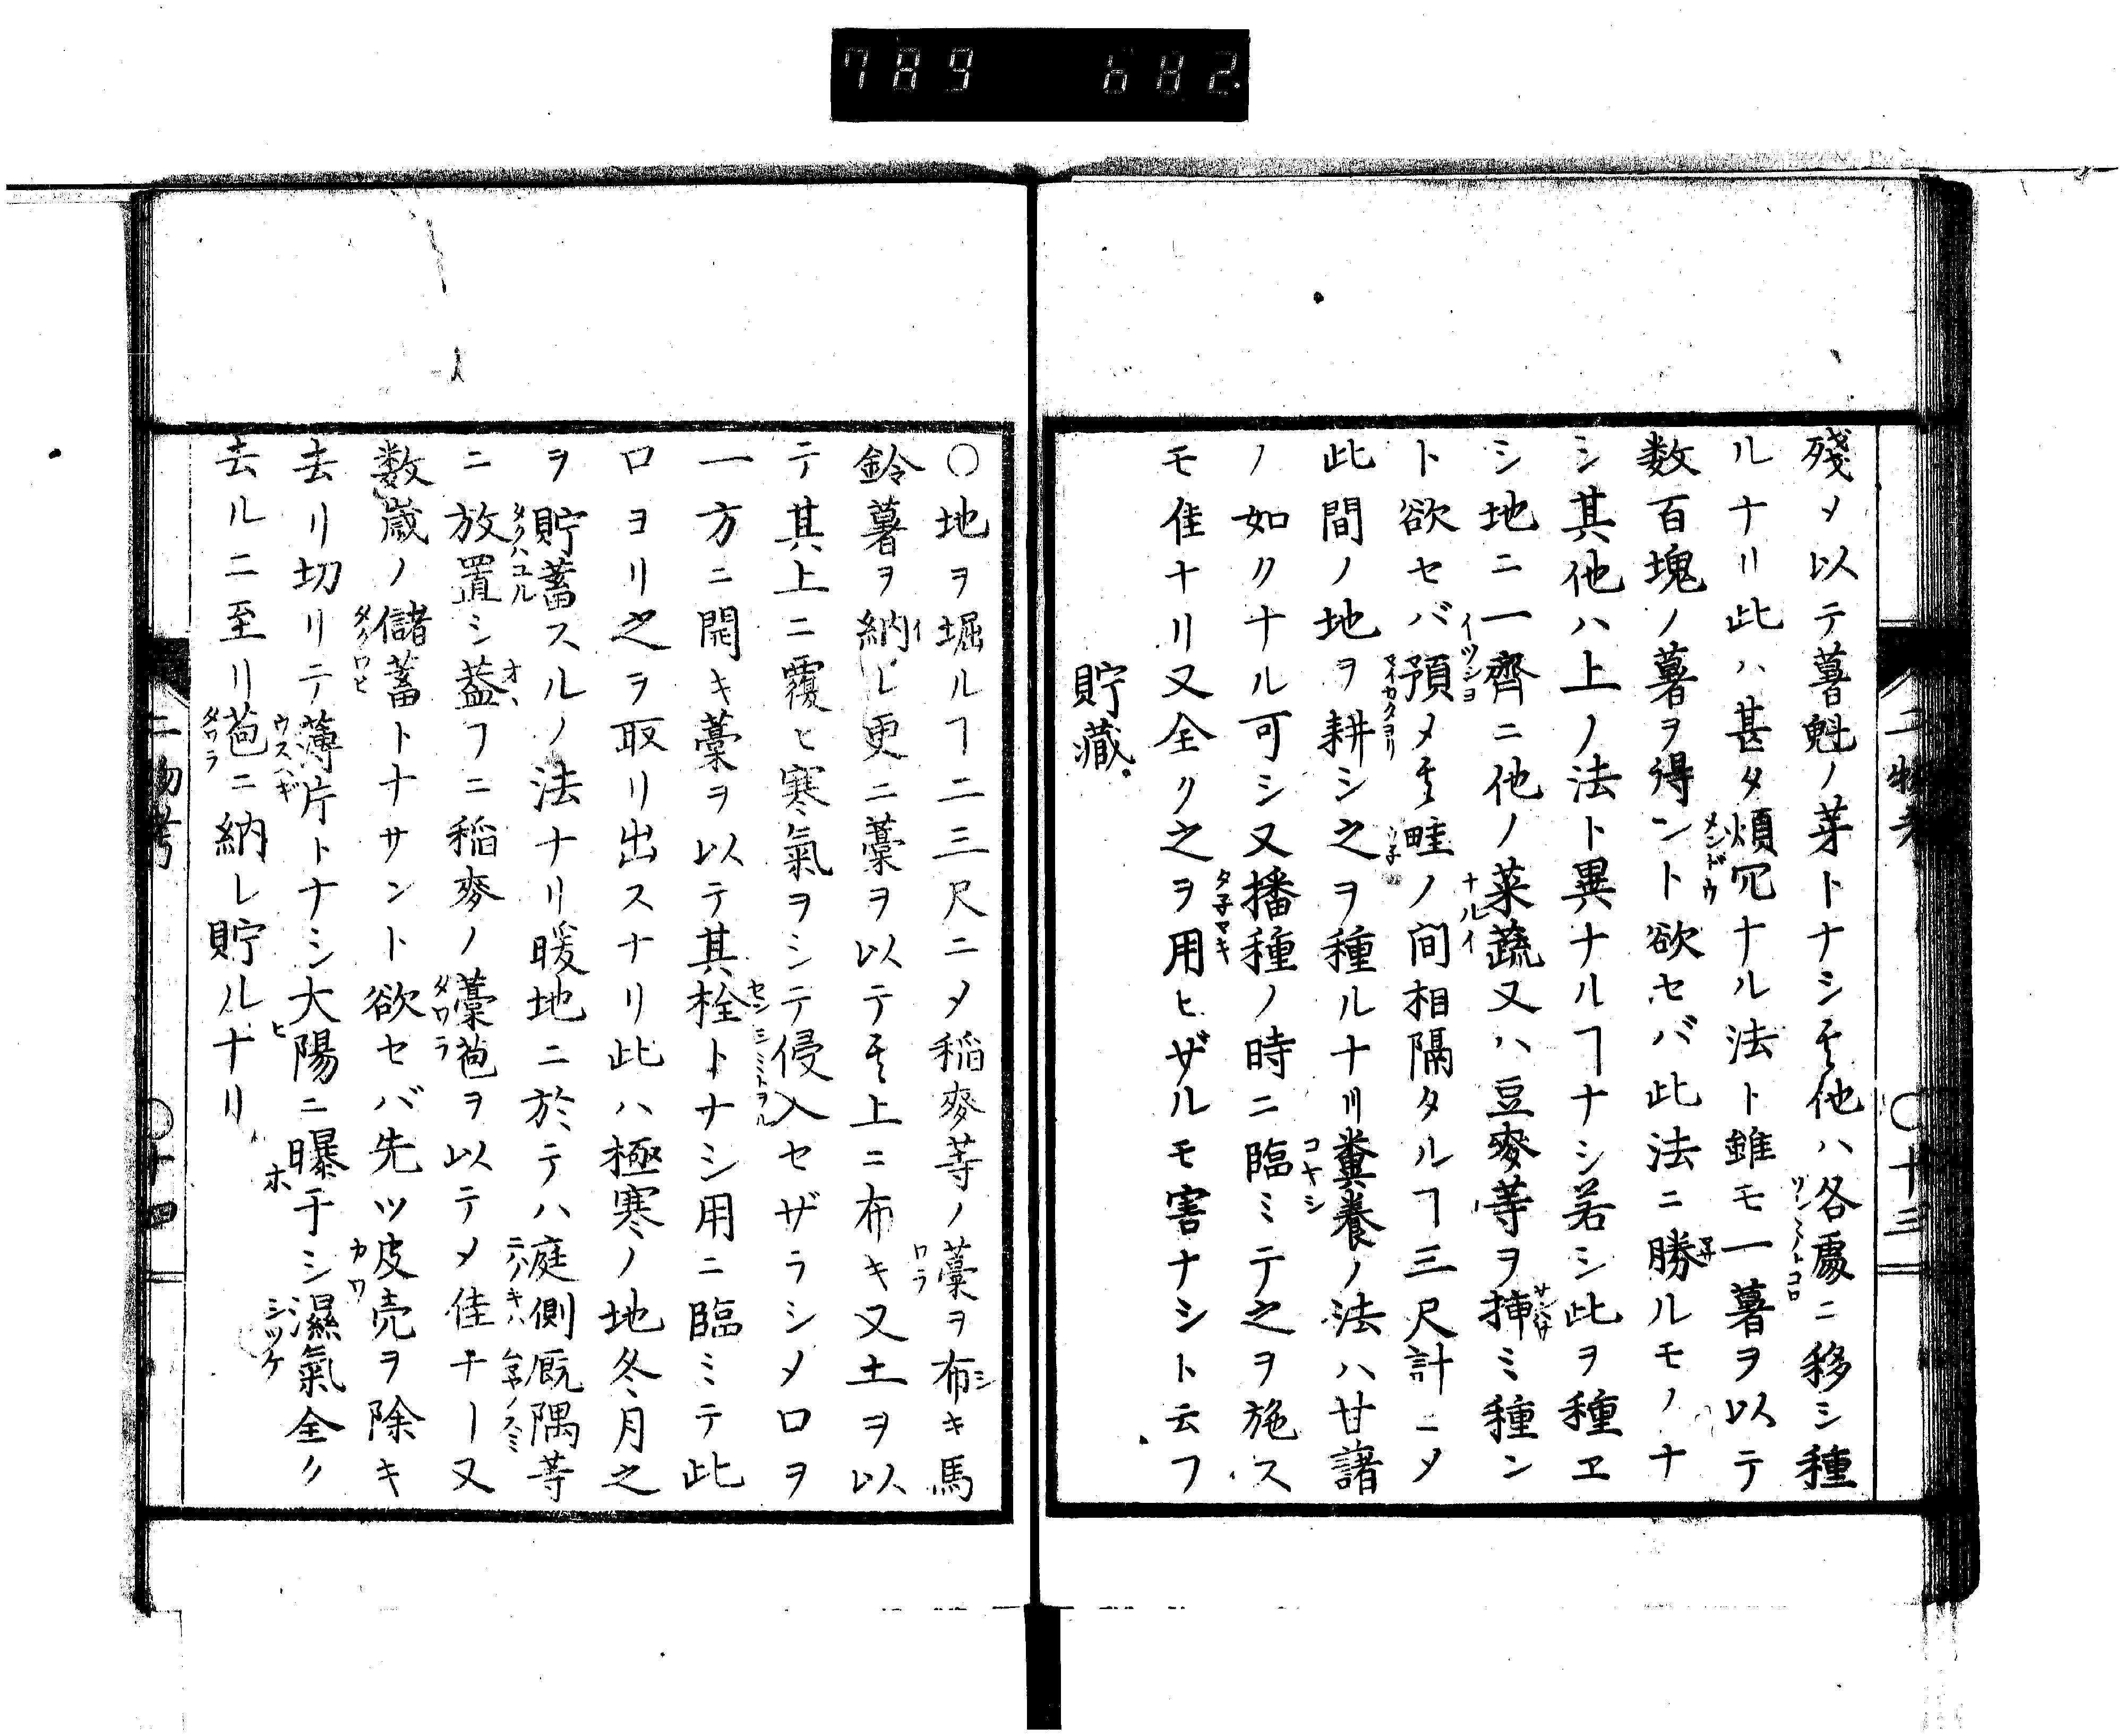 789 682.
二物考 〇十三
残メ以テ薯魁ノ芽トナシ其他ハ各處ニ移シ種
ルナリ此ハ甚タ煩冗ナル法ト雖モ一薯ヲ以テ
数百塊ノ薯ヲ得ント欲セバ此法ニ勝ルモノナ
シ其他ハ上ノ法ト異ナルヿナシ若シ此ヲ種ヱ
シ地ニ一齊ニ他ノ菜蔬又ハ豆麥等ヲ挿ミ種ン
ト欲セバ預メ其畦ノ间相隔タルヿ三尺計ニメ
此間ノ地ヲ耕シ之ヲ種ルナリ糞養ノ法ハ甘藷
ノ如クナル可シ又播種ノ時ニ臨ミテ之ヲ施ス
モ佳ナリ又全ク之ヲ用ヒザルモ害ナシト云フ
貯藏
〇地ヲ堀ルヿ二三尺ニメ稲麥等ノ藁ヲ布キ馬
鈴薯ヲ納レ更ニ藁ヲ以テ其上ニ布キ又土ヲ以
テ其上ニ覆ヒ寒氣ヲシテ侵入セザラシメ口ヲ
一方ニ開キ藁ヲ以テ其栓トナシ用ニ臨ミテ此
口ヨリ之ヲ取リ出スナリ此ハ極寒ノ地冬月之
ヲ貯蓄スルノ法ナリ暖地ニ於テハ庭側厩隅等
ニ放置シ蓋フニ稲麥ノ藁苞ヲ以テメ佳ナリ又
数歳ノ儲蓄トナサント欲セバ先ツ皮売ヲ除キ
去リ切リテ薄片トナシ大陽ニ曝干シ濕氣全ク
去ルニ至リ苞ニ納レ貯ルナリ
二物考 〇十四